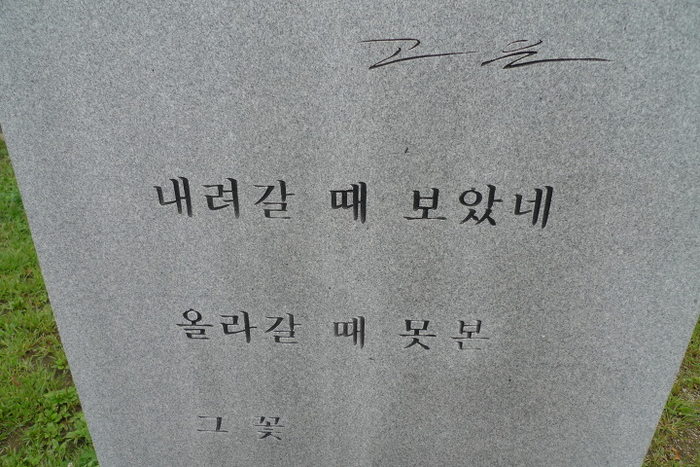 고 은
내려갈 때 보았네
올라갈 때 못본
그 꽃